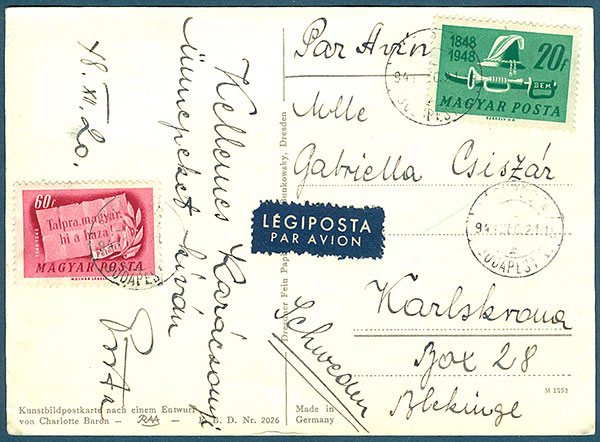 48. XII. 20.
Kellemes Karácsonyi
ünnepeket kíván
60f
Talpra magyar,
hi a haza!
PETŐFI
1848-1948
MAGYAR POSTA
BUDAPEST
Par Avion
1848
1948
20f
BEM
MAGYAR POSTA
BUDAPEST
Mlle
Gabriella Csiszár
LÉGIPOSTA
PAR AVION
BUDAPEST
Karlskrona
Box 28
Blekinge
Schweden
Dresdner Fein Papi
unkowsky, Dresden
Kunstbildpostkarte nach einem Entwurf
von Charlotte Baron – B. D. Nr. 2026
Made in
Germany
M 1293